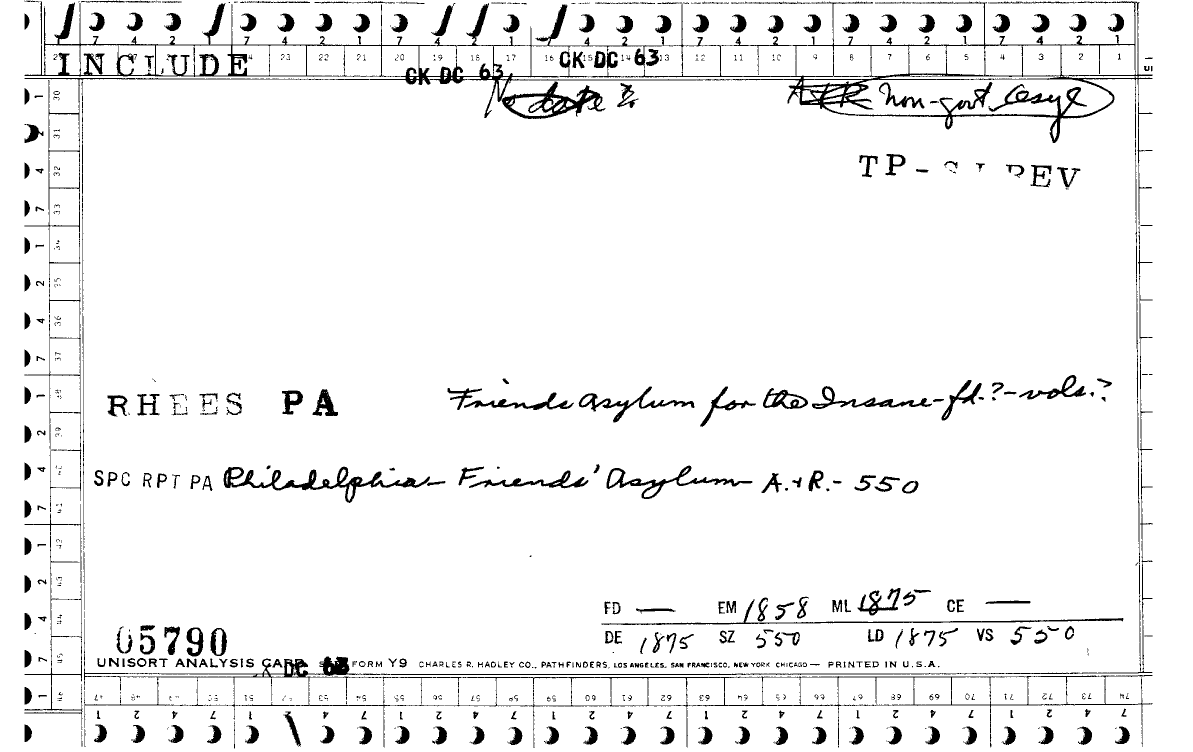 7 4 2 1 7 4 2 1 7 4 2 1 7 4 2 1 7 4 2 1 7 4 2 1
23 22 21 20 19 18 17 16 15 14 13 12 11 10 9 8 7 6 5 4 3 2 1
INCLUDE
CK DC 63 CK DC 63
No date ?. A&R non-govt asyl
TP-SJ REV
RHEES PA Friends Asylum for the Insane-fd.?-vols.?
SPC RPT PA Philadelphia- Friends' Asylum A.&R.- 550
FD — EM 1858 ML 1875 CE —
DE 1875 SZ 550 LD 1875 VS 550
05790
UNISORT ANALYSIS CARD FORM Y9 CHARLES R. HADLEY CO., PATHFINDERS, LOS ANGELES, SAN FRANCISCO, NEW YORK CHICAGO — PRINTED IN U.S.A.
DC 63
47 48 49 50 51 52 53 54 55 56 57 58 59 60 61 62 63 64 65 66 67 68 69 70 71 72 73 74
1 2 4 7 1 2 4 7 1 2 4 7 1 2 4 7 1 2 4 7 1 2 4 7 1 2 4 7